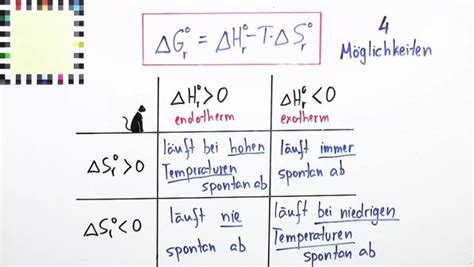 ΔG°ᵣ = ΔH°ᵣ - T · ΔS°ᵣ
4
Möglichkeiten
ΔH°ᵣ > 0
endotherm
ΔH°ᵣ < 0
exotherm
ΔS°ᵣ > 0
läuft bei hohen
Temperaturen
spontan ab
läuft immer
spontan ab
ΔS°ᵣ < 0
läuft nie
spontan ab
läuft bei niedrigen
Temperaturen
spontan ab